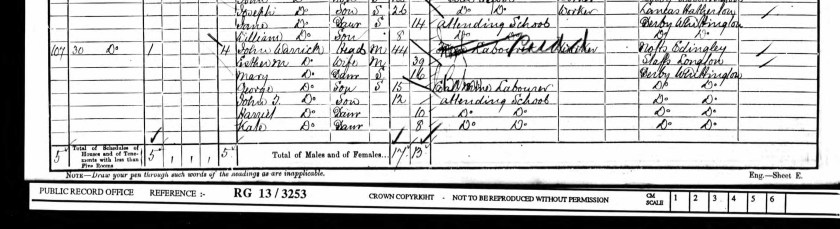 Joseph Do Son S 26 Do Do Worker Lancs
Do Daur 14 attending School Derby Whittington
William Do Son 8 Do Do Do Do
107 30 Do 1 4 John Warrick Head M 44 Worker Notts Edingley
Esther M Do Wife M 39 Staffs Longton
Mary Do Daur S 16 Derby Whittington
George Do Son S 15 Labourer Do Do
John T. Do Son 12 attending School Do Do
Harriet Do Daur 10 Do Do Do Do
Kate Do Daur 8 Do Do Do Do
5 Total of Schedules of Houses and of Tenements with less than Five Rooms 5 5 Total of Males and of Females... 17 13
NOTE—Draw your pen through such words of the headings as are inapplicable. Eng.—Sheet E.
PUBLIC RECORD OFFICE REFERENCE :- RG 13/3253 CROWN COPYRIGHT - NOT TO BE REPRODUCED WITHOUT PERMISSION CM SCALE 1 2 3 4 5 6